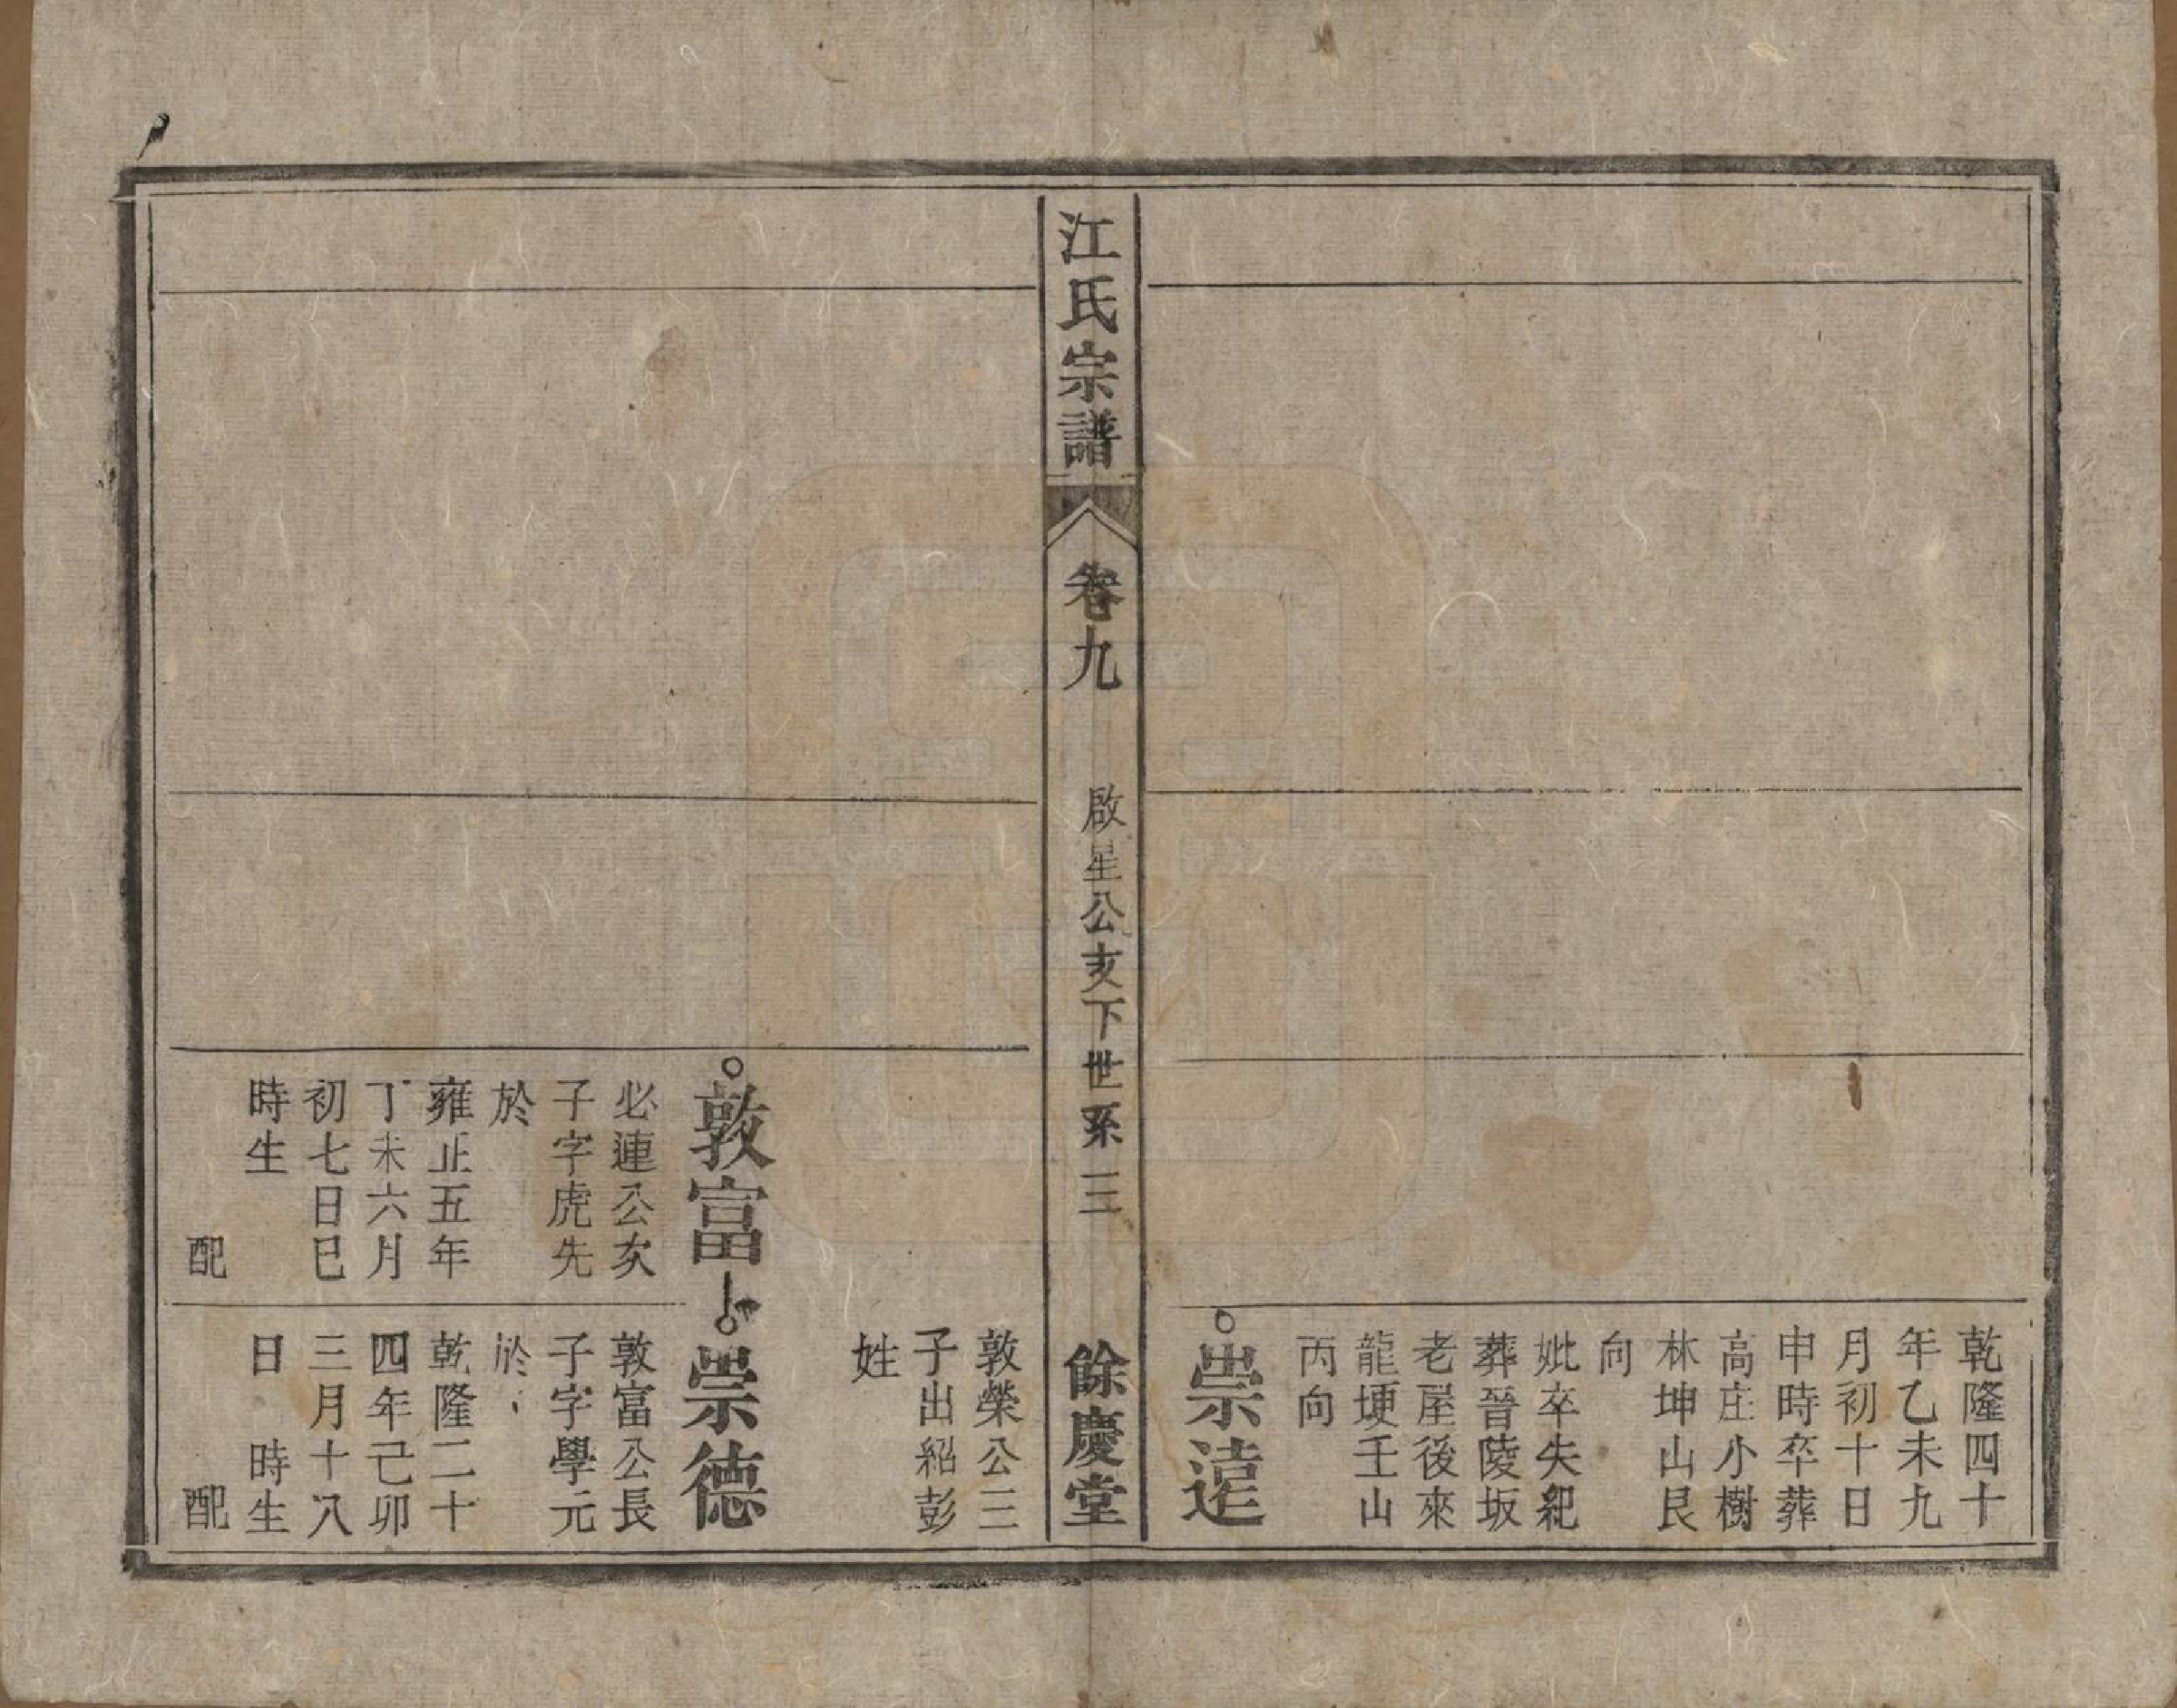 乾隆四十
年乙未九
月初十日
申時卒葬
高庄小樹
林坤山艮
向
妣卒失紀
葬晉陵坂
老屋後來
龍埂壬山
丙向
崇逺
江氏宗譜
卷九
啟星公亥下世系
三
餘慶堂
敦榮公三
子出紹彭
姓
敦富
必連公次
子字虎先
於
雍正五年
丁未六月
初七日巳
時生
配
崇德
敦富公長
子字學元
於
乾隆二十
四年己卯
三月十八
日 時生
配